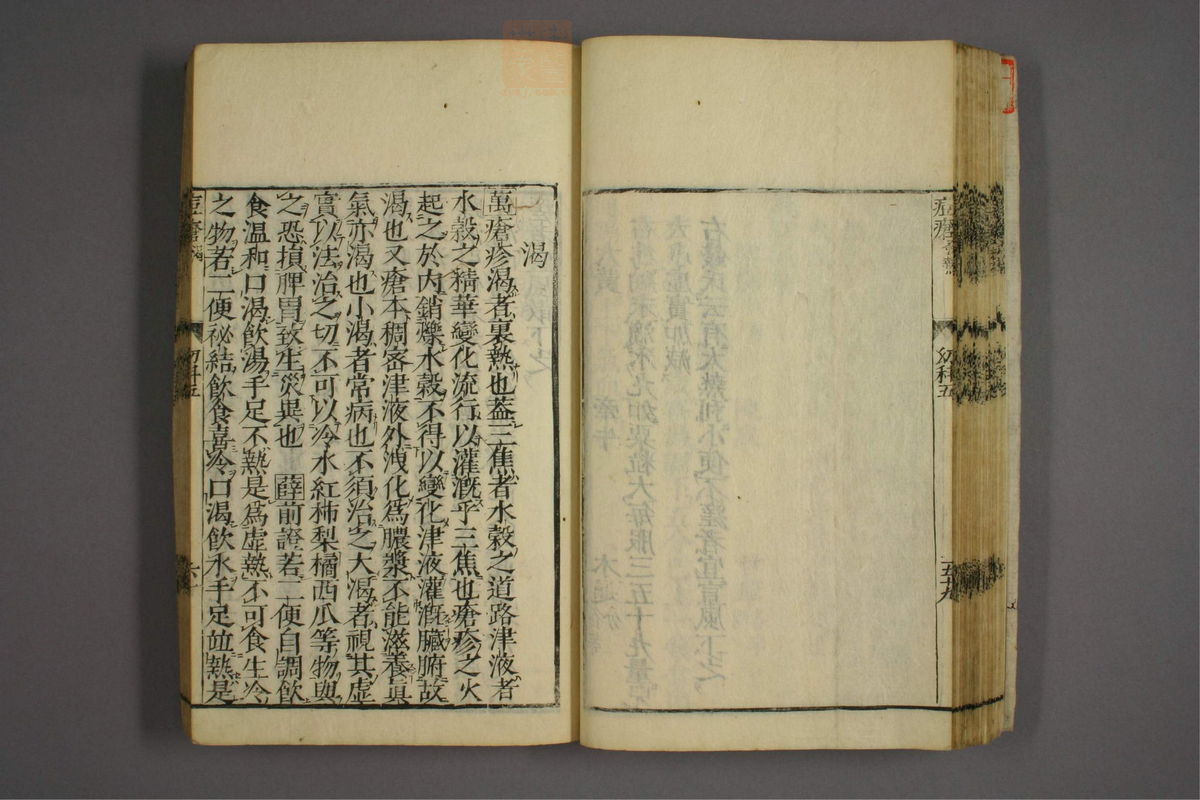 痘疹
幼科五
五十九
渴
萬瘡疹渴者裏熱也蓋三焦者水穀之道路津液者
水穀之精華變化流行以灌漑乎三焦也瘡疹之火
起之於內銷爍水穀不得以變化津液灌漑臟腑故
渴也又瘡本稠密津液外洩化爲膿漿不能滋養真
氣亦渴也小渴者常病也不須治之大渴者視其虛
實以法治之切不可以冷水紅柿梨橘西瓜等物與
之恐損脾胃致生災異也薛前證若二便自調飲
食溫和口渴飲湯手足不熱是爲虛熱不可食生冷
之物若二便祕結飲食喜冷口渴飲水手足竝熱是
渴
幼科五
六十